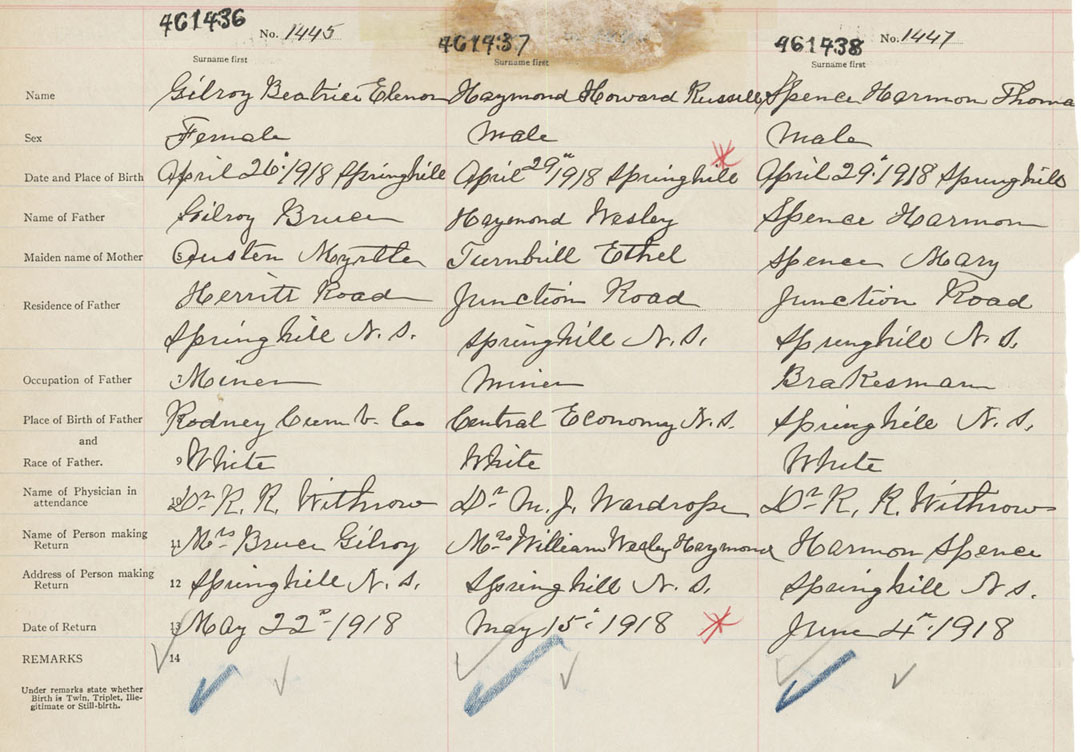 461436 No. 1445 461437 461438 No. 1447
Surname first Surname first Surname first
Name Gilroy Beatrice Elenor Haymond Howard Russell Spence Harmon Thoma
Sex Female Male Male
Date and Place of Birth April 26 1918 Springhill April 29" 1918 Springhill April 29 1918 Springhill
Name of Father Gilroy Bruce Haymond Wesley Spence Harmon
Maiden name of Mother 5 Myrtle Turnbull Ethel Spence Mary
Residence of Father Herritt Road Junction Road Junction Road
Springhill N.S. Springhill N.S. Springhill N.S.
Occupation of Father 7 Miner Miner Brakesman
Place of Birth of Father Rodney Cumb. Co Central Economy N.S. Springhill N.S.
and
Race of Father. 9 White White White
Name of Physician in attendance 10 Dr R. R. Withrow Dr M. J. Wardrope Dr R. R. Withrow
Name of Person making Return 11 Mrs Bruce Gilroy Mrs William Wesley Haymond Harmon Spence
Address of Person making Return 12 Springhill N.S. Springhill N.S. Springhill N.S.
Date of Return 13 May 22 1918 May 15 1918 June 4 1918
REMARKS 14
Under remarks state whether
Birth is Twin, Triplet, Ille-
gitimate or Still-birth.